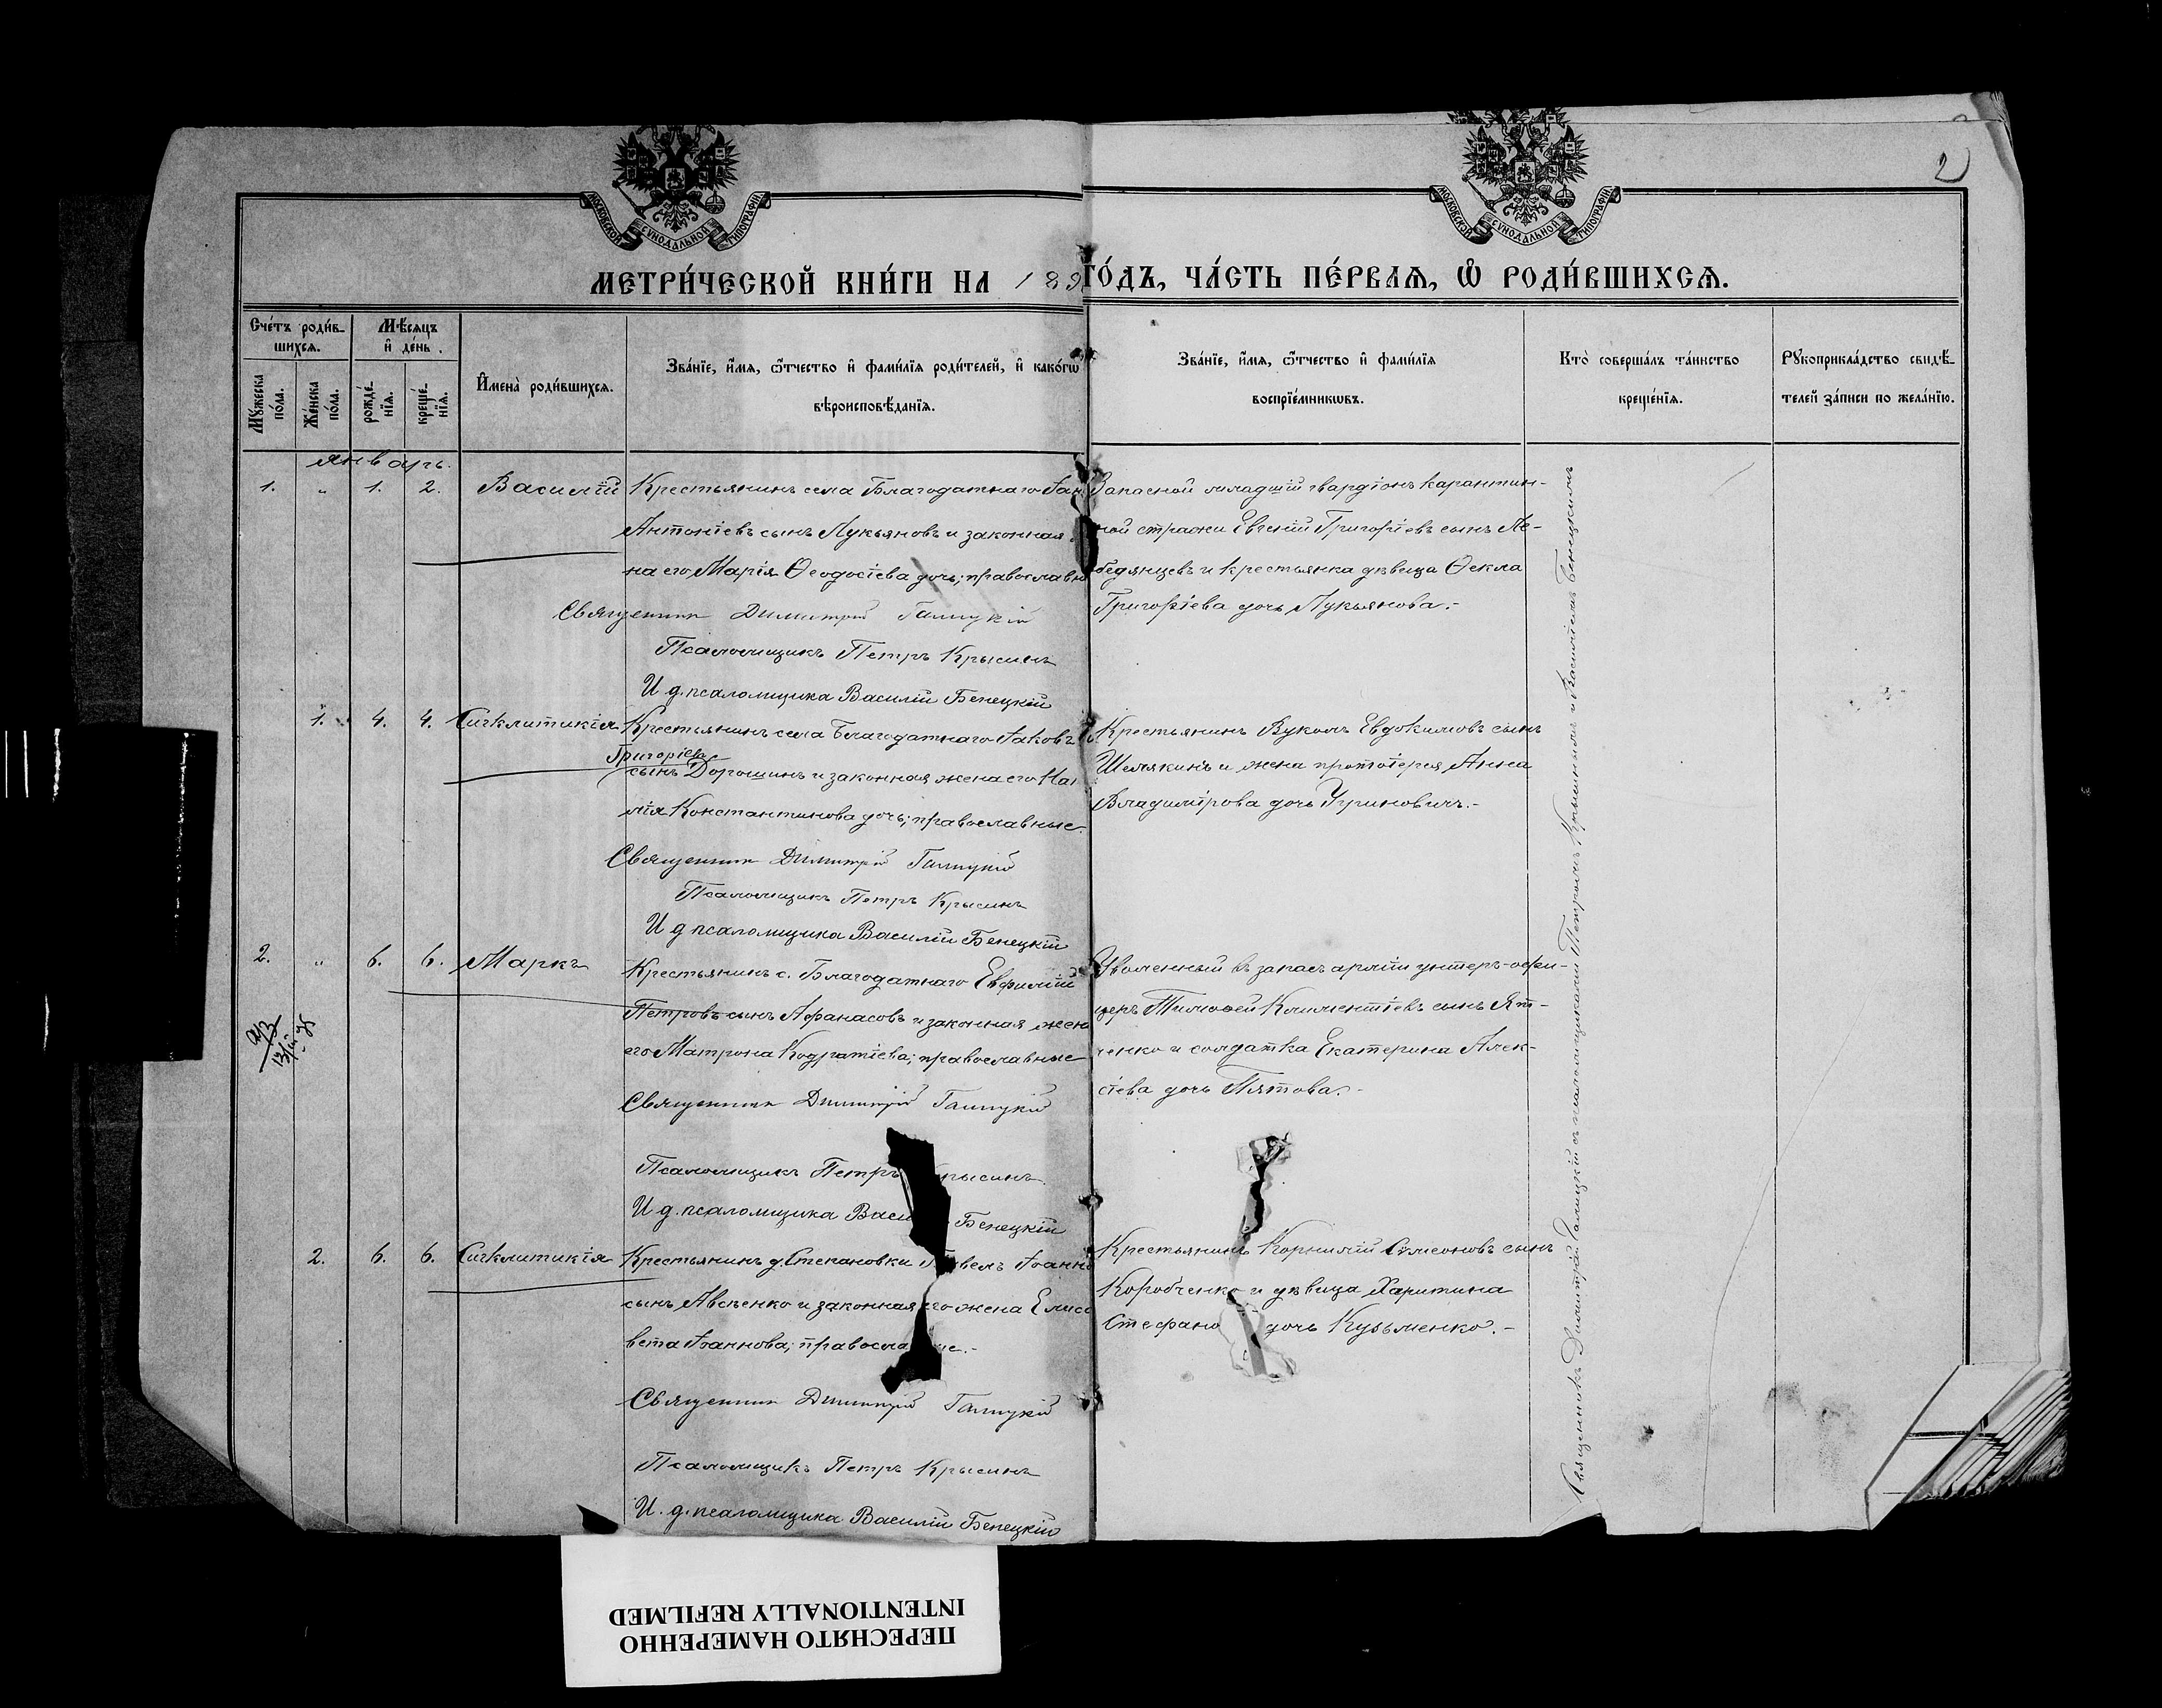 2
МОСКОВСКОЙ СѴНОДАЛЬНОЙ ТИПОГРАФІИ
МОСКОВСКОЙ СѴНОДАЛЬНОЙ ТИПОГРАФІИ
МЕТРИ́ЧЕСКОЙ КНИ́ГИ НА 189 ГО́ДЪ, ЧА́СТЬ ПЕ́РВАѦ, Ѡ҆ РОДИ́ВШИХСѦ.
Сче́тъ роди́в-
шихсѧ.
Мѣ́сѧцъ
и҆ де́нь.
Мꙋ́жеска
по́ла.
Же́нска
по́ла.
рожде́-
нїѧ.
креще́-
нїѧ.
И҆мена̀ роди́вшихсѧ.
Зва́нїе, и҆́мѧ, ѻ҆́тчество и҆ фами́лїѧ роди́телей, и҆ како́гѡ
вѣроисповѣ́данїѧ.
Зва́нїе, и҆́мѧ, ѻ҆́тчество и҆ фами́лїѧ
воспрїе́мникѡвъ.
Кто̀ соверша́лъ та́инство
креще́нїѧ.
Рꙋкоприкла́дство свидѣ́-
телей за́писи по жела́нїю.
Январь.
1. " 1. 2. Василій Крестьянинъ села Благодатнаго
Антоніевъ сынъ Лукьяновъ и законная
на его Марія Ѳеодосіева дочь; православн
Священник Димитрій Галицкій
Псаломщикъ Петръ Крысинъ
И д. псаломщика Василій Бенецкій
Запасной младшій гвардіонъ карантин-
ной стражи Евгеній Григоріевъ сынъ Ле-
бедянцевъ и крестьянка дѣвица Ѳекла
Григоріева дочь Лукьянова.-
1. 4. 4. Сигклитикія Крестьянинъ села Благодатнаго Іаковъ
Григоріевъ
сынъ Дорошинъ и законная жена его На
лія Константинова дочь; православные.
Священник Димитрій Галицкій
Псаломщикъ Петръ Крысинъ
И д псаломщика Василій Бенецкій
Крестьянинъ Вуколъ Евдокимовъ сынъ
Шемякинъ и жена протоіерея Анна
Владимірова дочь Чуриновичъ.-
2. " 6. 6. Маркъ Крестьянинъ с. Благодатнаго Евфимій
Петровъ сынъ Афанасовъ и законная жен
его Матрона Кодратіева; православные
Священник Димитрій Галицкій
Псаломщикъ Петръ рысинъ
И д. псаломщика Васи Бенецкій
Уволенный въ запасъ арміи унтеръ-офи-
церъ Тимофей Климентіевъ сынъ Ят-
ченко и солдатка Екатерина Алек-
сіева дочь Пятова.-
2. 6. 6. Сигклитикія Крестьянинъ д. Степановки Павелъ Іоанно
сынъ Авсѣенко и законная его жена Елиса
вета Іоаннова; правосла ые.-
Священник Димитрій Галицкій
Псаломщикъ Петръ Крысинъ
И. д. псаломщика Василій Бенецкій
Крестьянинъ Корнилій Симеоновъ сынъ
Коробченко и дѣвица Харитина
Стефано дочь Кузьменко.-
Священникъ Димитрій Галицкій съ псаломщиками Петромъ Крысинымъ и Василіемъ Бенецкимъ
ПЕРЕСНЯТО НАМЕРЕННО
INTENTIONALLY REFILMED